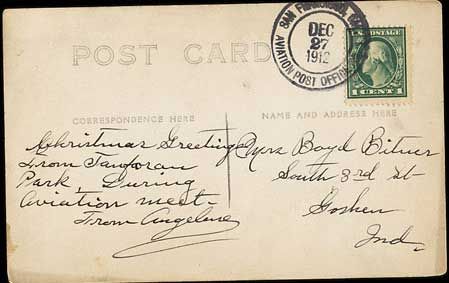 POST CARD
SAN FRANCISCO, CAL.
DEC
27
1912
AVIATION POST OFFICE
1 CENT 1
CORRESPONDENCE HERE
NAME AND ADDRESS HERE
Christmas Greeting
From Tanforan
Park, During
Aviation meet-
From Angeline
Mrs Boyd Bitner
South 3rd St
Goshen
Ind.